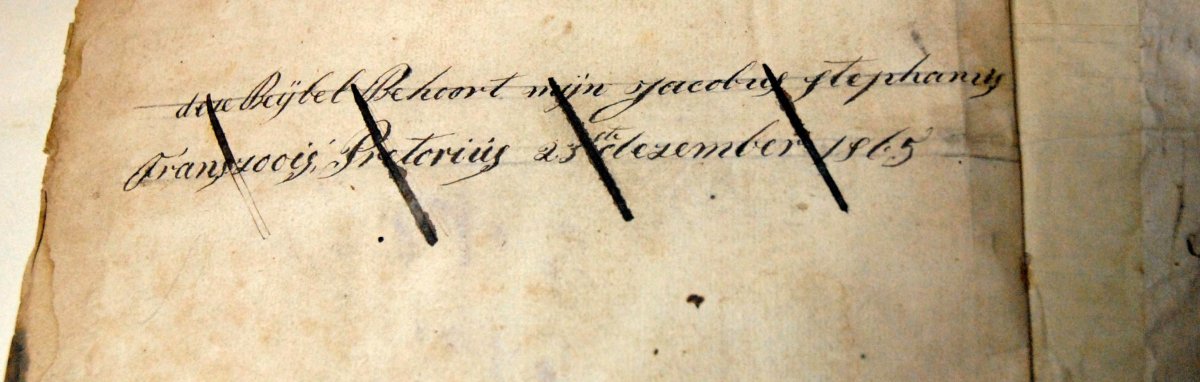 deze Beÿbel Behoort mÿn Jacobus stephanus
Franszoois, Pretoriús 23ste dezember 1865